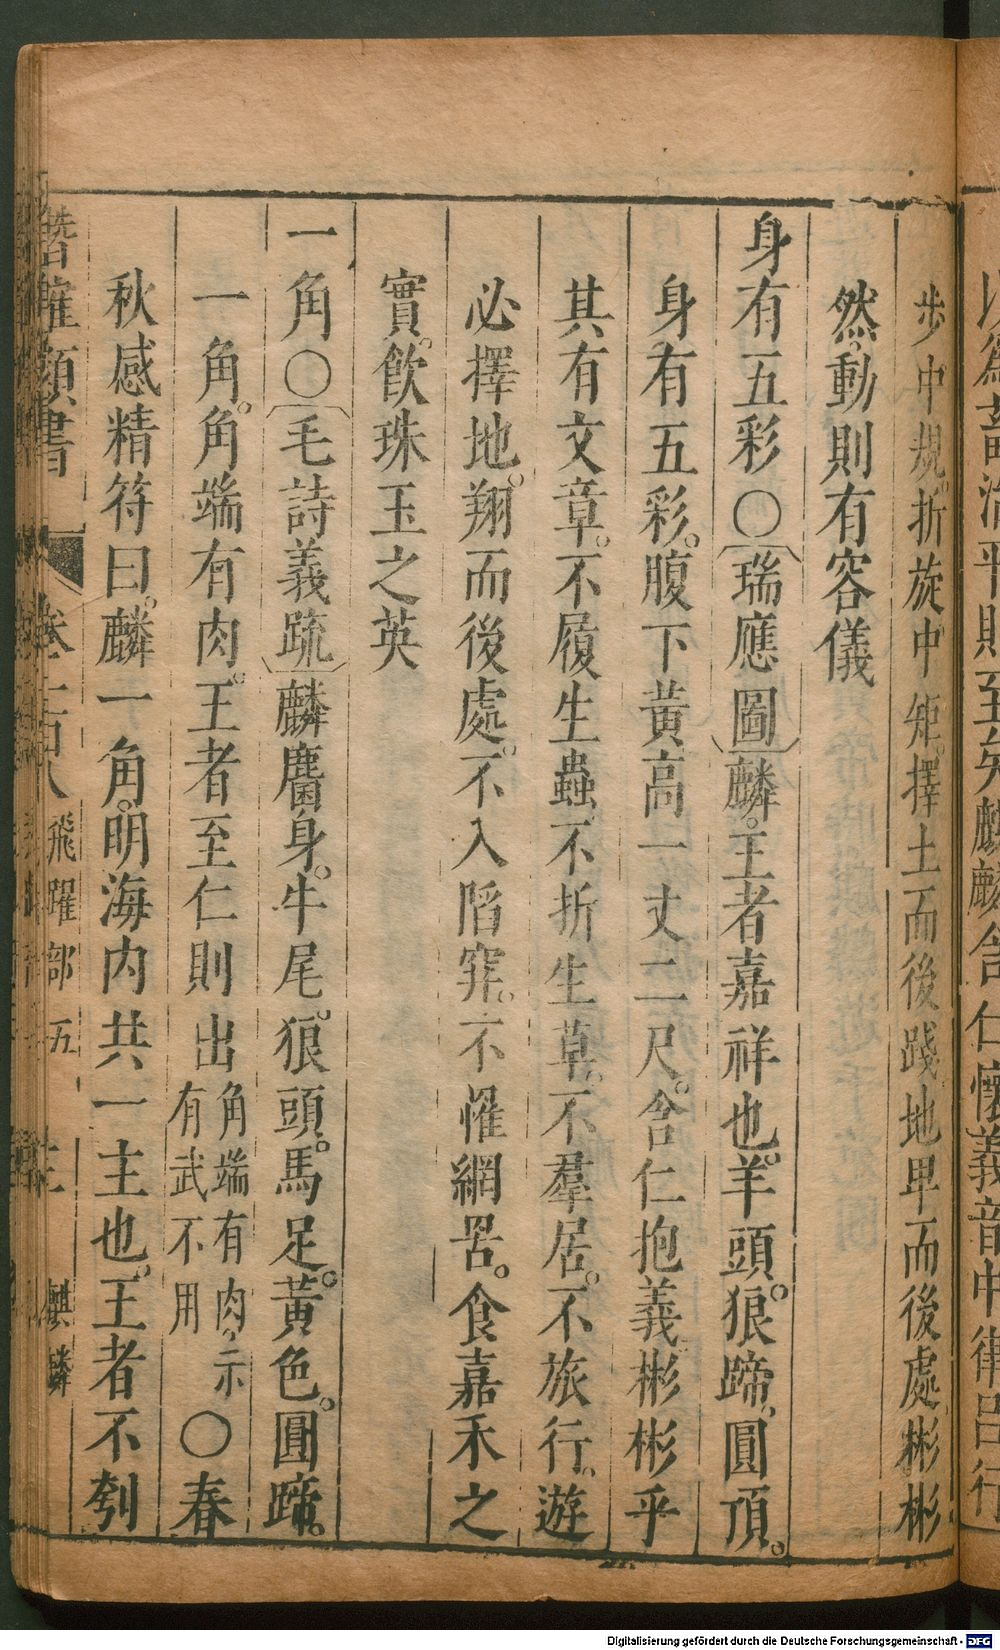 步中規。折旋中矩。擇土而後踐地卑而後處彬彬
然。動則有容儀
身有五彩〇瑞應圖麟。王者嘉祥也。羊頭。狼蹄。圓頂。
身有五彩。腹下黃高一丈二尺。含仁抱義彬彬乎
其有文章。不履生蟲不折生草。不羣居。不旅行。遊
必擇地。翔而後處。不入陷穽。不罹網罟。食嘉禾之
實。飮珠玉之英
一角〇毛詩義疏麟麕身。牛尾。狼頭。馬足。黃色。圓蹄。
一角。角端有肉。王者至仁則出角端有肉，示有武不用〇春
秋感精符曰。麟一角。明海內共一主也。王者不刳
潛確類書
飛躍部五
麒麟
Digitalisierung gefördert durch die Deutsche Forschungsgemeinschaft - DFG